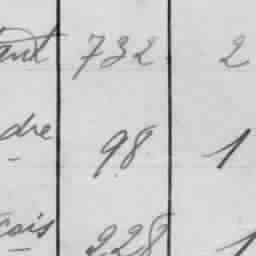 ant 732 2
dre 98 1
çois 228 1